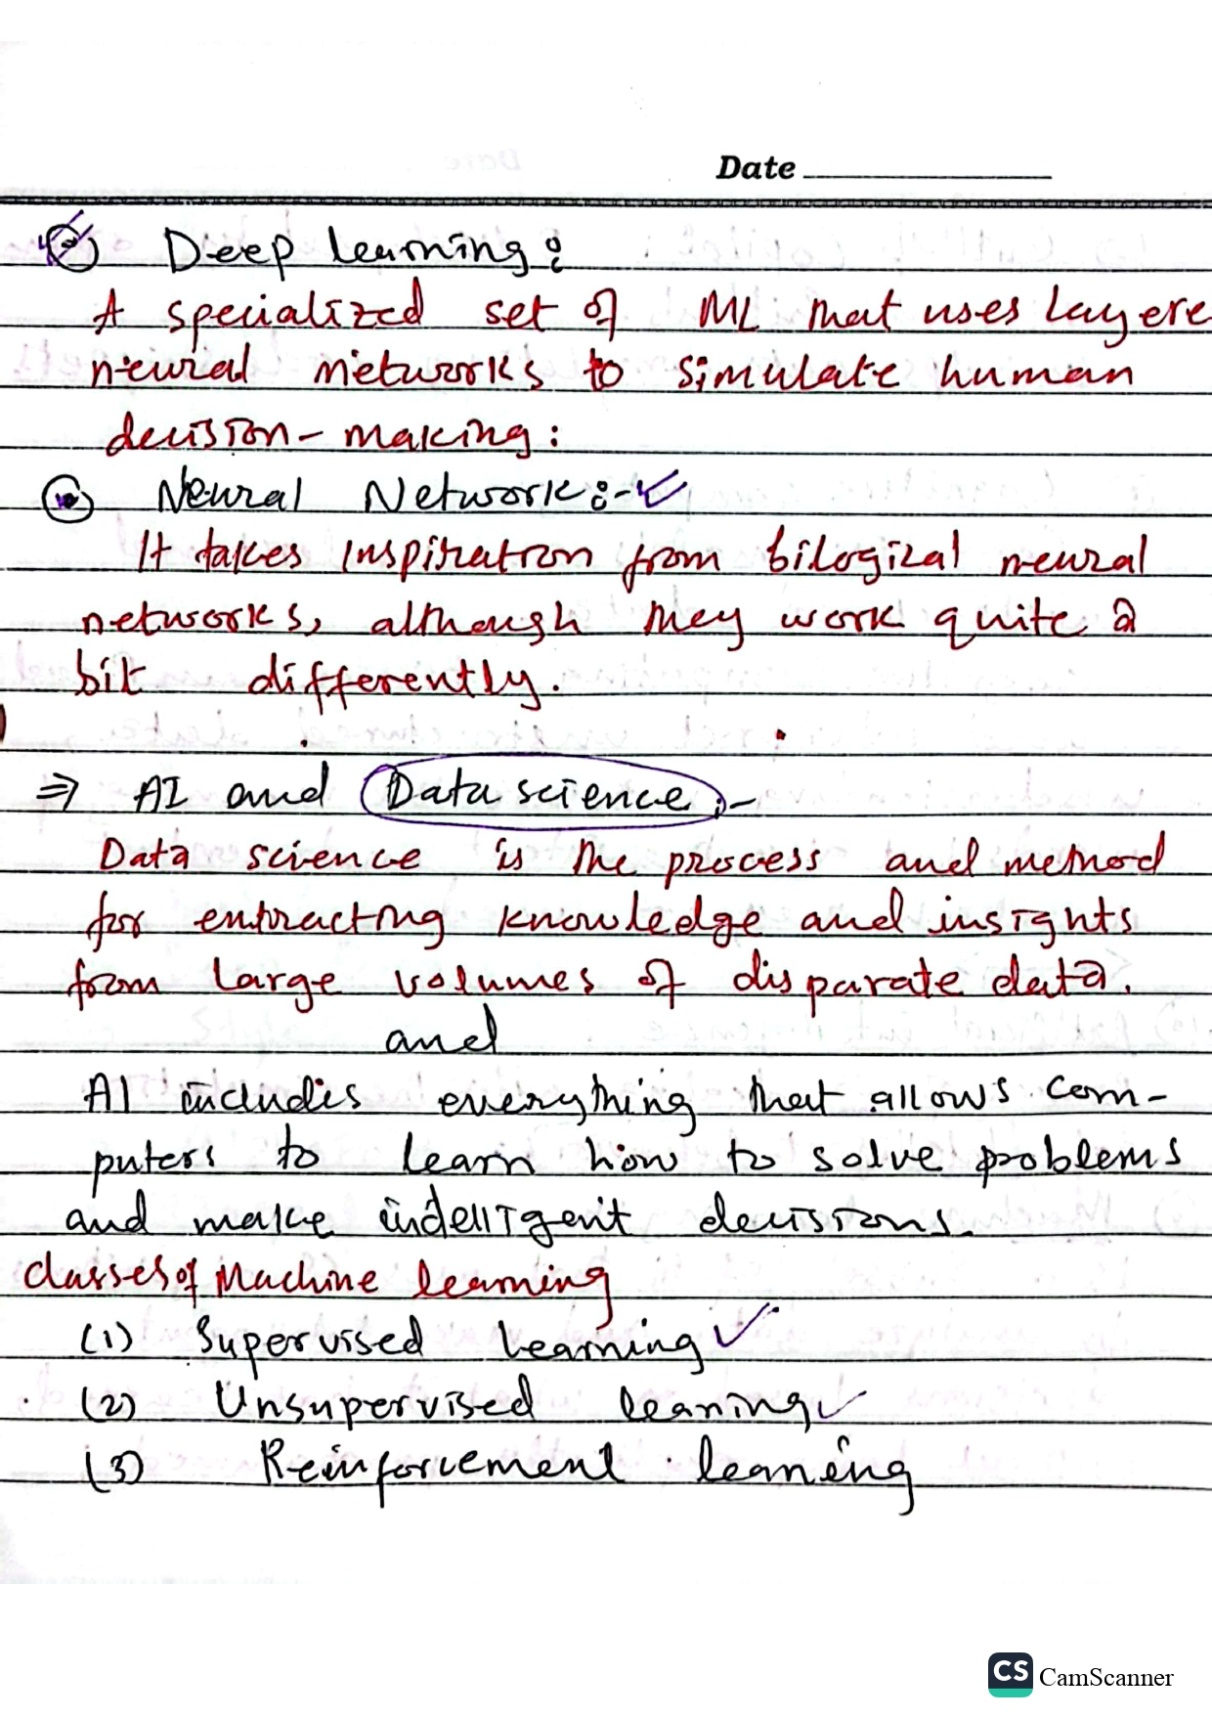 Date
Deep learning:
A specialized set of ML that uses layere
neural networks to simulate human
decision-making:
Neural Network:-
It takes inspiration from bilogical neural
networks, although they work quite a
bit differently.
⇒ AI and Data science:-
Data science is the process and method
for extracting knowledge and insights
from large volumes of disparate data.
and
AI includes everything that allows com-
puters to learn how to solve problems
and make intelligent decisions.
classes of Machine learning
(1) Supervised Learning
(2) Unsupervised leaning
(3) Reinforcement leaning
CS CamScanner